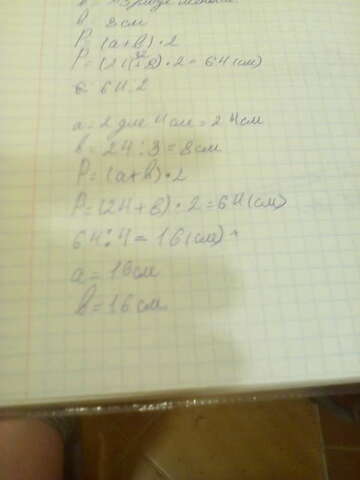 b = 8 см
P = (a+b)·2
·2 = 64 (см)
64:2
a = 2 дм 4 см = 24 см
b = 24 : 3 = 8 см
P = (a+b)·2
P = (24+8)·2 = 64 (см)
64:4 = 16 (см)
a = 16 см
b = 16 см